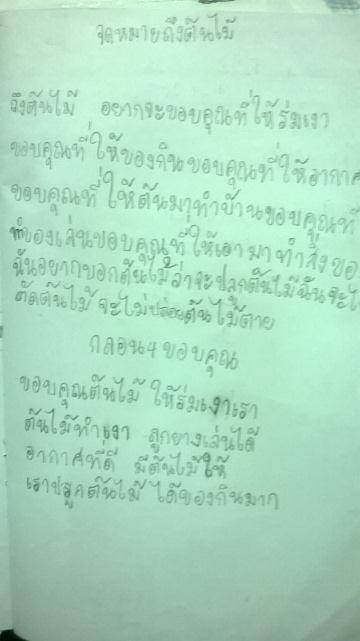 จดหมายถึงต้นไม้
ถึงต้นไม้ อยากจะขอบคุณที่ให้ร่มเงา
ขอบคุณที่ให้ของกินขอบคุณที่ให้อากาศ
ขอบคุณที่ให้ต้นมาทำบ้านขอบคุณที่
ทำของเล่นขอบคุณที่ให้เอามาทำสิ่งขอ
ฉันอยากบอกต้นไม้ว่าจะปลูกต้นไม้ฉันจะไ
ตัดต้นไม้จะไม่ปล่อยต้นไม้ตาย
กลอน4ขอบคุณ
ขอบคุณต้นไม้ ให้ร่มเงาเรา
ต้นไม้ทำเงา ลูกยางเล่นได้
อากาศที่ดี มีต้นไม้ให้
เราปลูกต้นไม้ ได้ของกินมาก